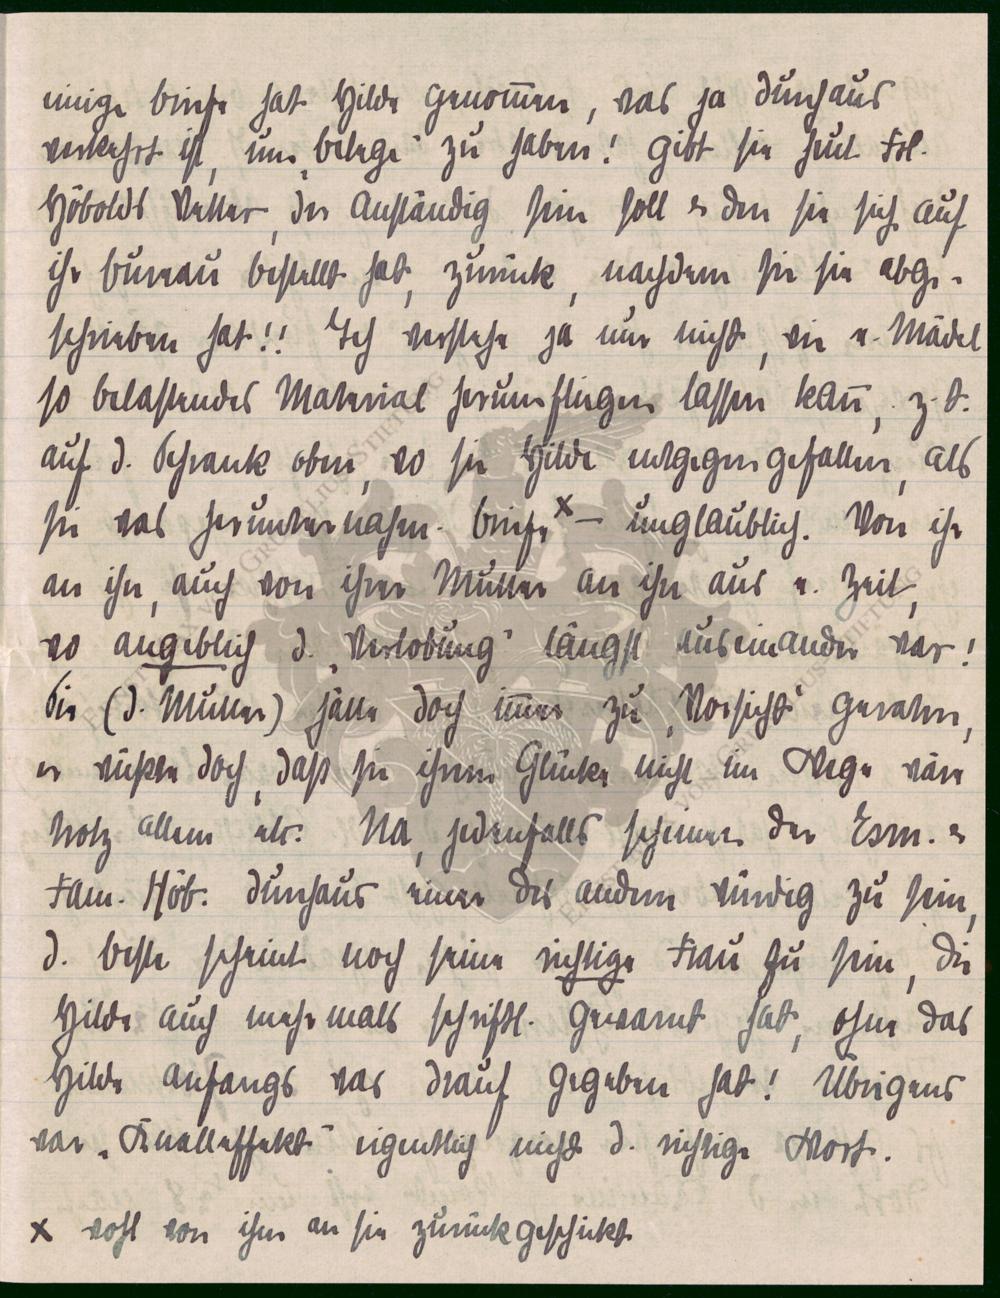 einige Briefe hat Hilde genom̄en, was ja durchaus
verkehrt ist, um „Belege" zu haben! Gibt sie heut Frl.
Höbolds Vetter, der anständig sein soll & den sie sich auf
ihr Bureau bestellt hat, zurück, nachdem sie sie abge-
schrieben hat!! Ich verstehe ja nur nicht, wie e. Mädel
so belastendes Material herumfliegen lassen kan̄, z. T.
auf d. Schrank oben, wo sie Hilde entgegengefallen, als
sie was herunternahm. Briefe x – unglaublich. Von ihr
an ihn, auch von ihrer Mutter an ihn aus e. Zeit,
wo angeblich d. „Verlobung" längst auseinander war!
Sie (d. Mutter) hätte doch im̄er zu „Vorsicht" geraten,
er wüßte doch, daß sie ihrem Glücke nicht im Wege wäre
trotz allem etc. Na, jedenfalls scheinen der &
Fam. Höb. durchaus einer des andern würdig zu sein,
d. beste scheint noch seine richtige Frau zu sein, die
Hilde auch mehrmals schriftl. gewarnt hat, ohne das
Hilde anfangs was drauf gegeben hat! Übrigens
war „Knalleffekt" eigentlich nicht d. richtige Wort.
x wohl von ihm an sie zurückgeschickt